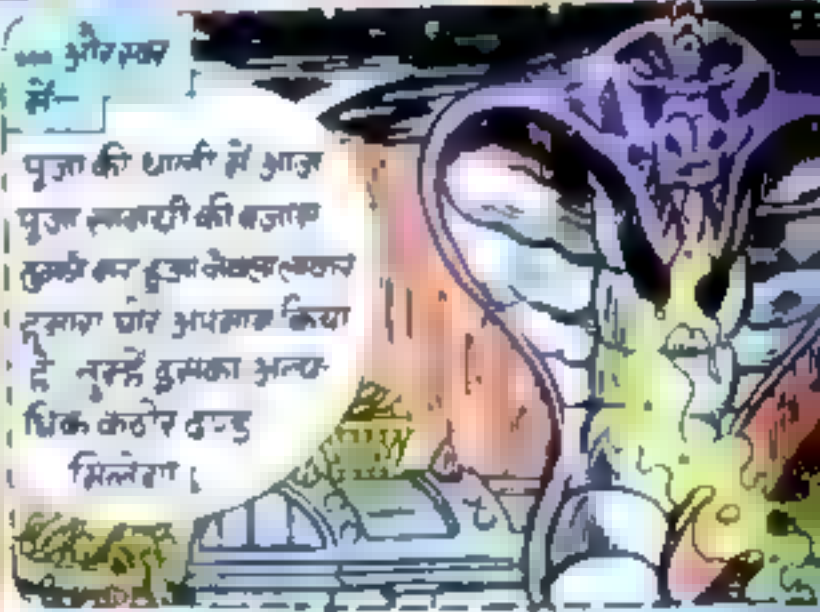 ... और स्वर
में—
पूजा की थाली में आज
पूजा सामग्री की बजाय
हुआ
हमारा घोर अपमान किया
है तुम्हें इसका अत्य-
धिक कठोर दण्ड
मिलेगा।